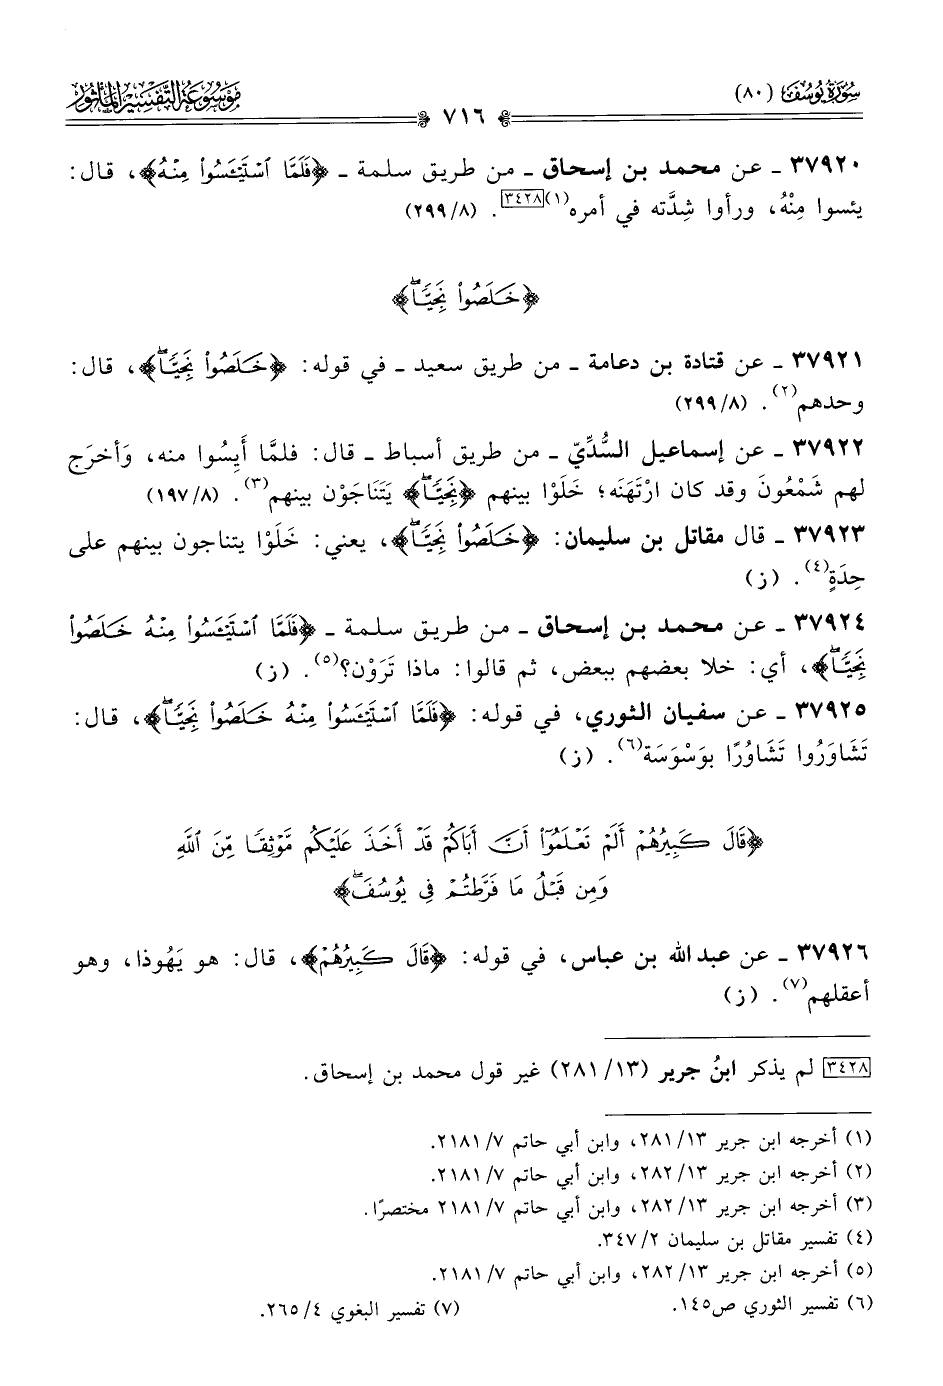 سُورَةُ يُوسُفَ (٨٠)
٧١٦
مَوْسُوعَةُ التَّفْسِيرِ المَأْثُورِ
٣٧٩٢٠ ـ عن محمد بن إسحاق ـ من طريق سلمة ـ ﴿فَلَمَّا ٱسْتَيْـَٔسُوا۟ مِنْهُ﴾، قال:
يئسوا مِنْهُ، ورأوا شِدَّته في أمره(١)[٣٤٢٨]. (٢٩٩/٨)
﴿خَلَصُوا۟ نَجِيًّا ۖ﴾
٣٧٩٢١ ـ عن قتادة بن دعامة ـ من طريق سعيد ـ في قوله: ﴿خَلَصُوا۟ نَجِيًّا ۖ﴾، قال:
وحدهم(٢). (٢٩٩/٨)
٣٧٩٢٢ ـ عن إسماعيل السُّدِّيّ ـ من طريق أسباط ـ قال: فلمَّا أَيِسُوا منه، وَأخرَج
لهم شَمْعُونَ وقد كان ارْتَهَنَه؛ خَلَوْا بينهم ﴿نَجِيًّا ۖ﴾ يَتَنَاجَوْن بينهم(٣). (١٩٧/٨)
٣٧٩٢٣ ـ قال مقاتل بن سليمان: ﴿خَلَصُوا۟ نَجِيًّا ۖ﴾، يعني: خَلَوْا يتناجون بينهم على
حِدَةٍ(٤). (ز)
٣٧٩٢٤ ـ عن محمد بن إسحاق ـ من طريق سلمة ـ ﴿فَلَمَّا ٱسْتَيْـَٔسُوا۟ مِنْهُ خَلَصُوا۟
نَجِيًّا ۖ﴾، أي: خلا بعضهم ببعض، ثم قالوا: ماذا تَرَوْن؟(٥). (ز)
٣٧٩٢٥ ـ عن سفيان الثوري، في قوله: ﴿فَلَمَّا ٱسْتَيْـَٔسُوا۟ مِنْهُ خَلَصُوا۟ نَجِيًّا ۖ﴾، قال:
تَشَاوَرُوا تَشَاوُرًا بوَسْوَسَة(٦). (ز)
﴿قَالَ كَبِيرُهُمْ أَلَمْ تَعْلَمُوٓا۟ أَنَّ أَبَاكُمْ قَدْ أَخَذَ عَلَيْكُم مَّوْثِقًا مِّنَ ٱللَّهِ
وَمِن قَبْلُ مَا فَرَّطتُمْ فِى يُوسُفَ ۖ﴾
٣٧٩٢٦ ـ عن عبد الله بن عباس، في قوله: ﴿قَالَ كَبِيرُهُمْ﴾، قال: هو يَهُوذا، وهو
أعقلهم(٧). (ز)
[٣٤٢٨] لم يذكر ابنُ جرير (٢٨١/١٣) غير قول محمد بن إسحاق.
(١) أخرجه ابن جرير ٢٨١/١٣، وابن أبي حاتم ٢١٨١/٧.
(٢) أخرجه ابن جرير ٢٨٢/١٣، وابن أبي حاتم ٢١٨١/٧.
(٣) أخرجه ابن جرير ٢٨٢/١٣، وابن أبي حاتم ٢١٨١/٧ مختصرًا.
(٤) تفسير مقاتل بن سليمان ٣٤٧/٢.
(٥) أخرجه ابن جرير ٢٨٢/١٣، وابن أبي حاتم ٢١٨١/٧.
(٦) تفسير الثوري ص١٤٥. (٧) تفسير البغوي ٢٦٥/٤.